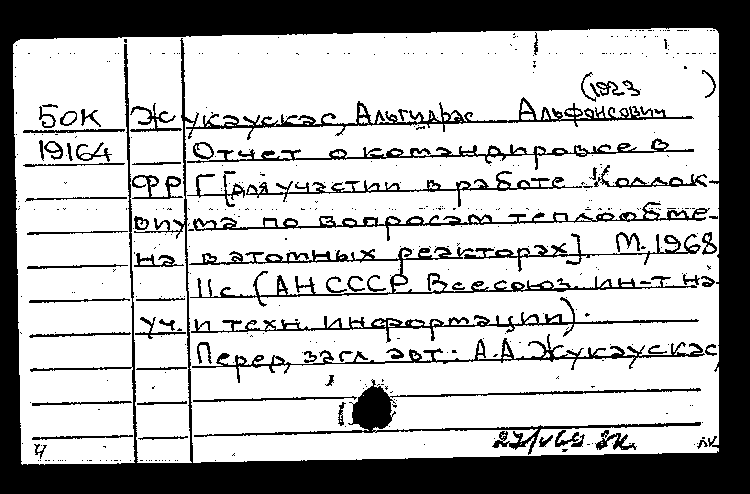 (1923 )
БОК Жукаускас, Альгидрас Альфонсович
19164 Отчет о командировке в
ФРГ [для участии в работе Коллок-
виума по вопросам теплообме-
на в атомных реакторах]. М., 1968.
11с. (АН СССР. Всесоюз. ин-т на-
уч. и техн. информации).
Перед загл. авт.: А.А. Жукаускас
Ч